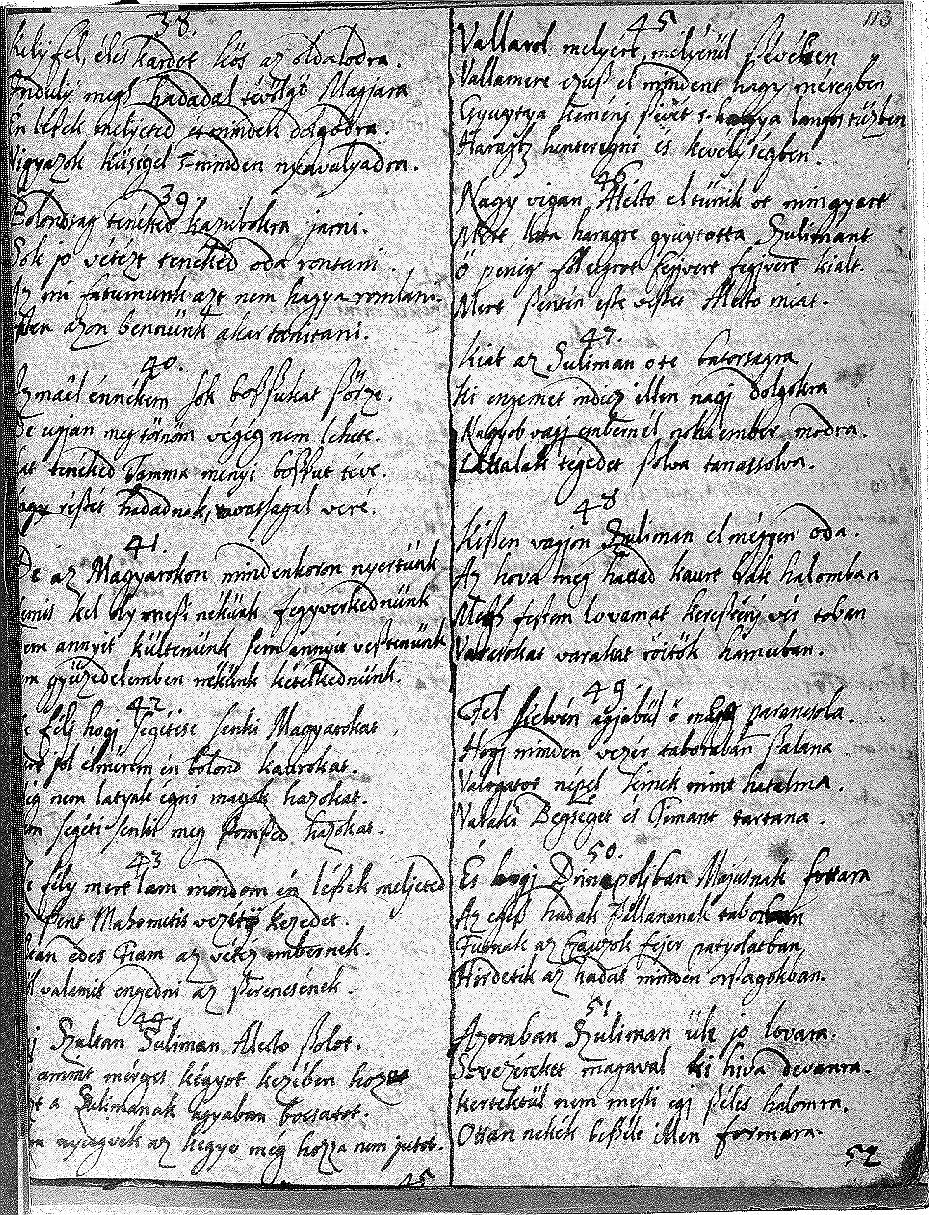 38.
kelj fel, éles kardot kös az oldalodra.
Indulj meg hadadal
En léßek melyeted es minden dolgodra.
Vigyazok hüségel s minden nyavalyadra.
39
Bolondsag teneked kazulokra jarni.
Sok jo vétezt teneked oda rontani.
Az mi fatumunk azt nem hagya romlani.
Isten azon bennünk akar tanitani.
40.
Ismaël énnékem sok boßßukat ßörze.
De ugjan meg törnöm végeg nem lehete.
teneked Tamma menyi boßßut téve.
hadadnak, veré.
41.
De az Magyarokon mindenkoron nyertünk
kel oly meßi nékünk fegyverkednünk
annyit kültenünk sem annyit veßtenünk
gyüzedelemben nékünk kételkednünk.
42.
félj hogj segétse senki Magyarokat
jol esmérem én bolond kaurokat.
nem latyak égni magok hazokat.
segéti senki meg ßomßed hazokat.
43
fély mert lam mondom én léßek meljeted
ßent Mahometis vezéti kezedet.
edes Fiam az vétez embernek.
valamit engedni az ßerencsének.
44.
Szultan Suliman Alecto ßolot.
amint mérges kégyot kezében hozot
a Sulimanak agyaban bocsatot.
az kegyo meg hozza nem jutot.
45
113
45
Vallarol melyére, melyérül ßevében
Vallamere czuß el mindent hagy méregben
Gyugtya kemény ßüvét s hagya langos tüzben
Haragh henteregni és kevelységben.
46
Nagy vigan Alecto el tünik ot mingyart
Mert lata haragre gyugtotta Szulimant
ö penig fel ugrot fejvert fegjvert kialt.
Mert ßertén este vißet Alecto miat.
47.
Kiat az Suliman ote batorsagra
Ki engemet inditz illen nagj dolgokra
Nagyob vagj embernél noha ember modra.
Lattalak tégedet ßolva tanatsolva.
48
Kißen vagjon Szuliman el mégjen oda.
Az hova meg hattad kaurt rak halomban
Meßß festem lovamat kereßtény vér toban
Varosokat varakat röitök hamuban.
49.
Fel kelvén agjabul ö parancsola.
Hogj minden vezér taboraban ßalana
Valogatot népel kinek mint hatalma.
Valaki Begséget és Timant tartana.
50.
És hogj Drinapoljban Majusnak fottara
Az egéß hadak ßallananak taborban
Futnak az Csauzok fejer patyolatban
Hirdetik az hadat minden orßagokban.
51.
Azomban Szuliman üle jo lovara.
S vezéreket magaval ki hiva devanra.
kertektül nem meßi egj ßéles halomra.
Ottan nekik beßéle illen formara.
52